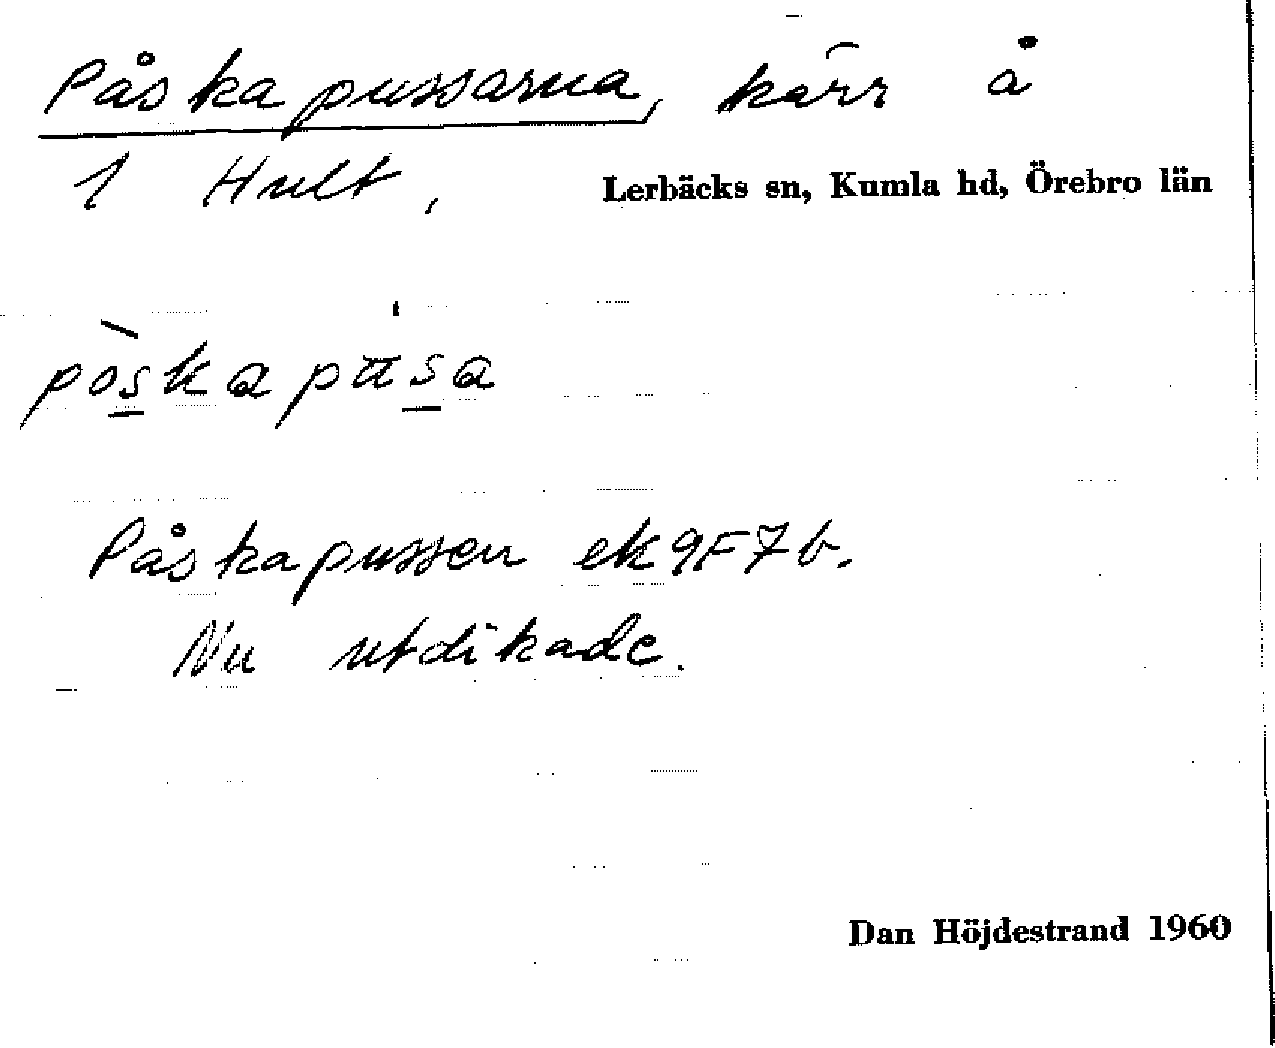 Påskapussarna, kärr å
1 Hult, Lerbäcks sn, Kumla hd, Örebro län
pòskapusa
Påskapussen ek 9F7b.
Nu utdikade.
Dan Höjdestrand 1960